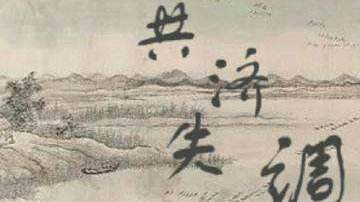 共济
失调